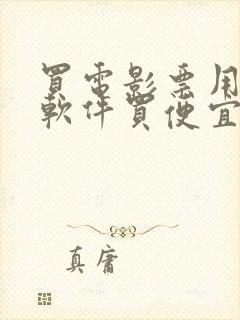 買電影票用
軟件買便宜
真庸